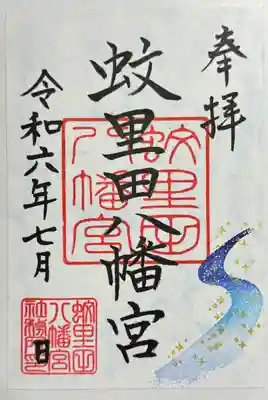 奉拝
蚊里田八幡宮
蚊里田
八幡宮
令和六年七月
日
蚊里田
八幡宮